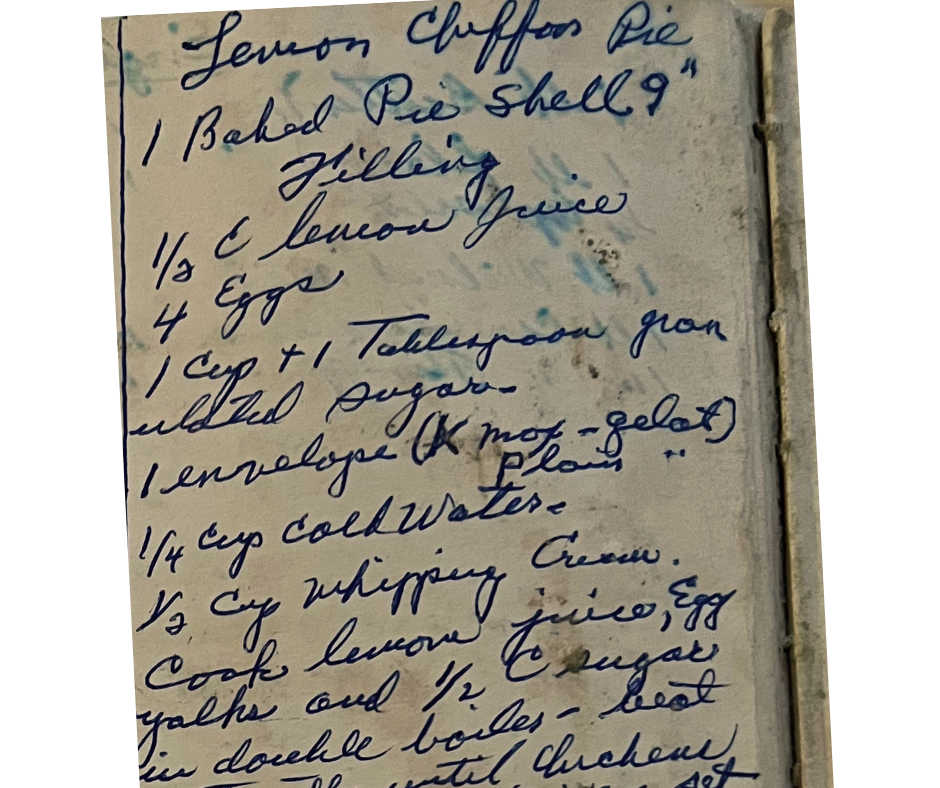 Lemon Chiffon Pie
1 Baked Pie Shell 9"
Filling
1/2 C lemon Juice
4 Eggs
1 Cup + 1 Tablespoon gran
ulated sugar.
1 envelope (K mox-gelat)
Plain "
1/4 Cup Cold Water.
1/2 Cup Whipping Cream.
Cook lemon juice, Egg
yolks and 1/2 C sugar
in double boiler - beat
until thickens
set